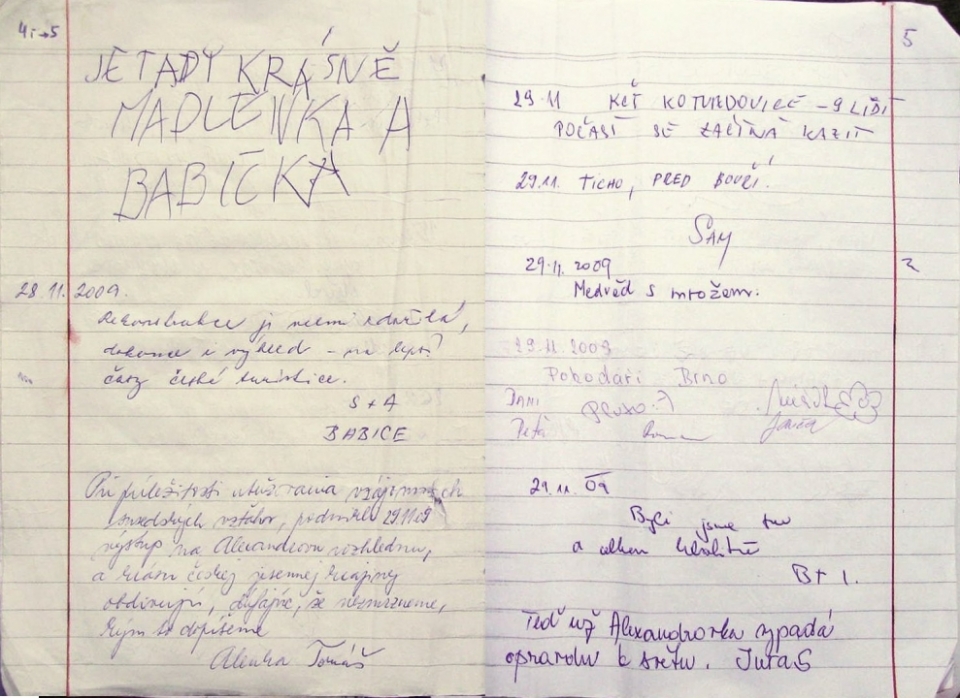 4 i → 5
JE TADY KRÁSNĚ
MADLENKA A
BABIČKA
28.11.2009.
Rekonstrukce je velmi zdařilá,
dokonce i výhled – na lepší
časy české turistice.
S + A
BABICE
Pri príležitosti utužovania vzájomných
susedských vzťahov, podnikli 29.11.09
výstup na Alexandrovu rozhledňu,
a krásu českej jesennej krajiny
obdivujú, dúfajúc, že nezmrzneme,
kým to dopíšeme
Alenka Tomáš
5
29.11 KČT KOTVRDOVICE – 9 LIDÍ
POČASÍ SE ZAČÍNÁ KAZIT
29.11. TICHO, PŘED BOUŘÍ.
SAM
29.11. 2009
2
Medvěd s mrožem.
29.11 2009
Pohodáři Brno
DANI
Pluxo :-)
Peťa
29.11. 09
Byli jsme tu
a celkem kvalitně
B + I.
Teď už Alexandrovka vypadá
opravdu k světu. JuraS